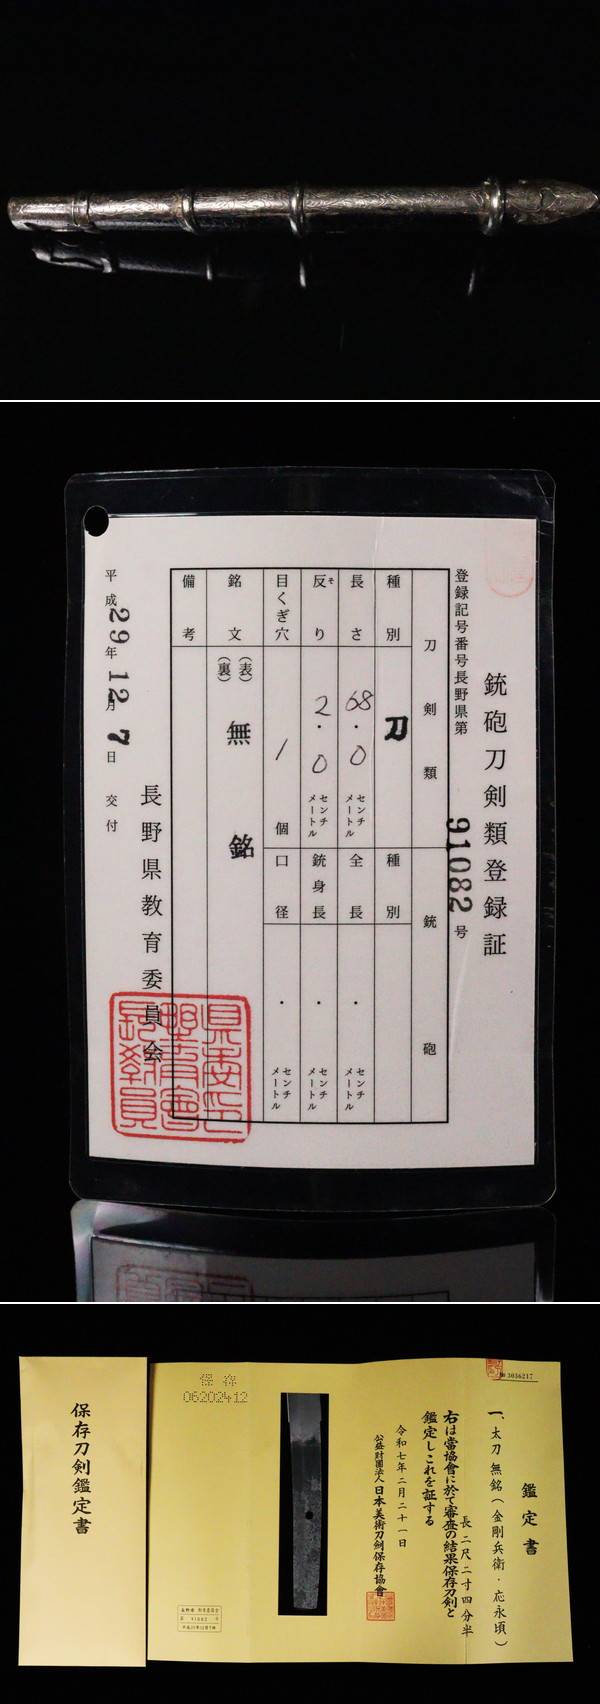 銃砲刀剣類登録証
登録記号番号長野県第 91082 号
刀剣類
銃砲
種別
刀
種別
長さ
68.0 センチメートル
全長
. センチメートル
反り
そ
2.0 センチメートル
銃身長
. センチメートル
目くぎ穴
1 個
口径
. センチメートル
銘文
(表)
(裏)
無銘
備考
平成29年12月7日 交付
長野県教育委員会
保存刀剣鑑定書
鑑定書
一、太刀 無銘(金剛兵衛・応永頃)
長 二尺二寸四分半
右は當協會に於て審査の結果保存刀剣と
鑑定しこれを証する
令和七年二月二十一日
公益財團法人 日本美術刀剣保存協會
保存
06202412
№ 3036217